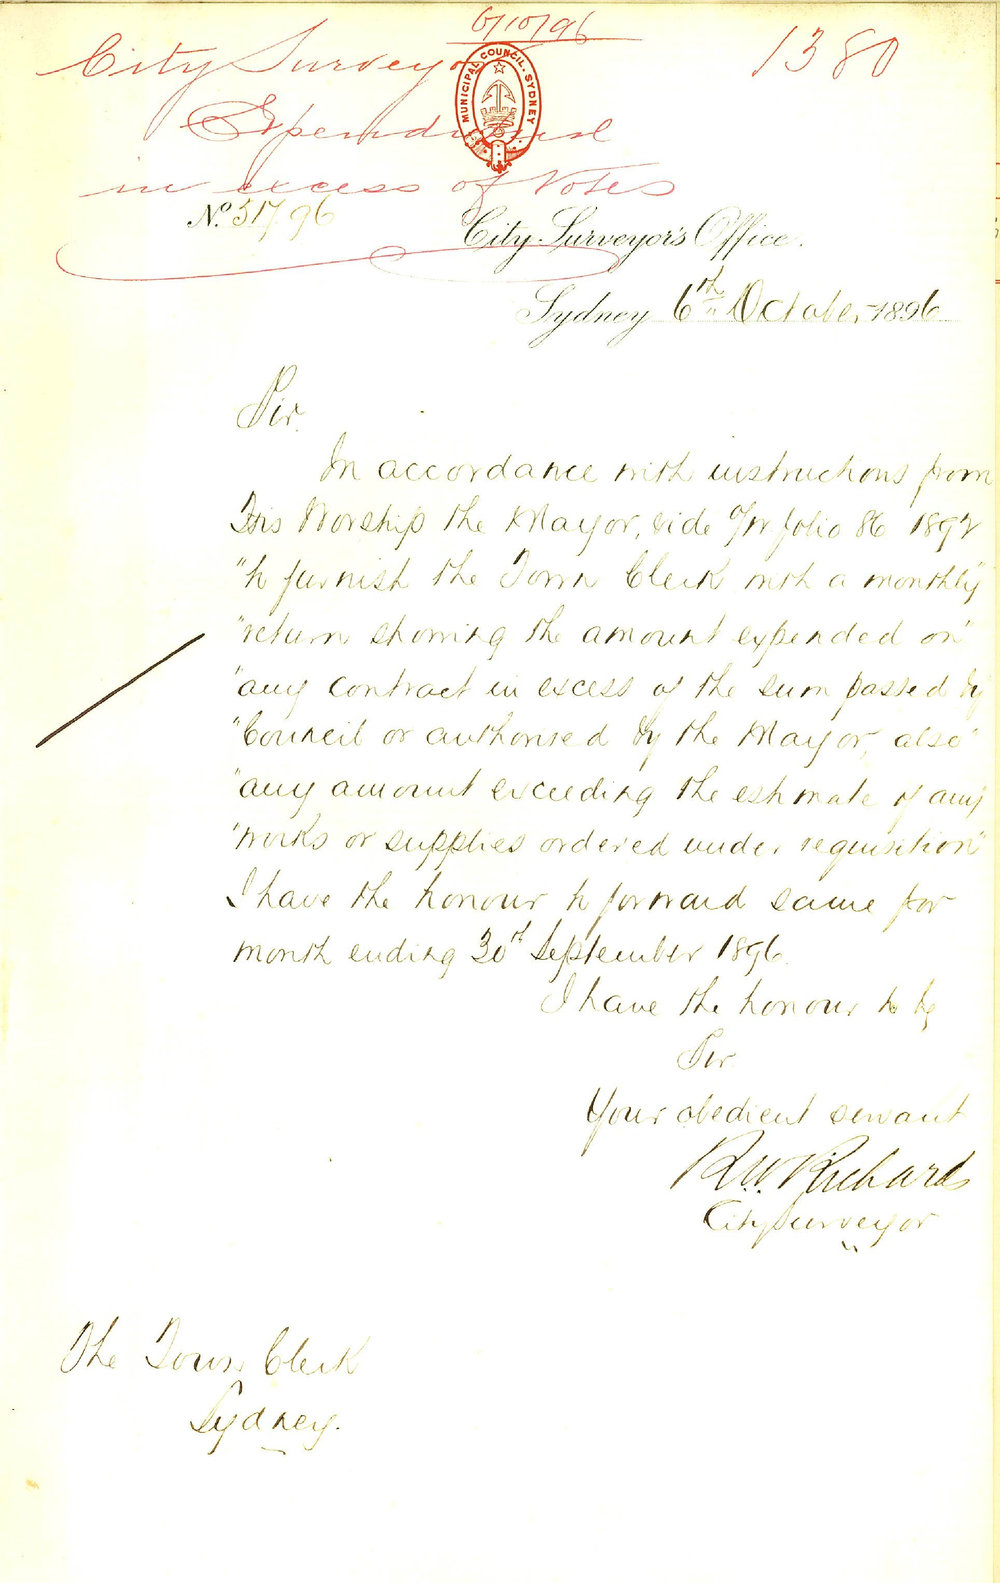 6/10/96
City Surveyor 1380
Expenditure
in excess of Votes
MUNICIPAL COUNCIL. SYDNEY
No. 517/96 City Surveyor's Office.
Sydney 6th October 1896
Sir.
In accordance with instructions from
His Worship the Mayor, vide folio 86 1892
"to furnish the Town Clerk with a monthly"
"return showing the amount expended on"
"any contract in excess of the sum passed by
"Council or authorised by the Mayor, also"
"any amount exceeding the estimate of any
"works or supplies ordered under requisition"
I have the honour to forward same for
month ending 30th September 1896.
I have the honour to be
Sir
Your obedient servant
R.W. Richards
City Surveyor
The Town Clerk
Sydney.